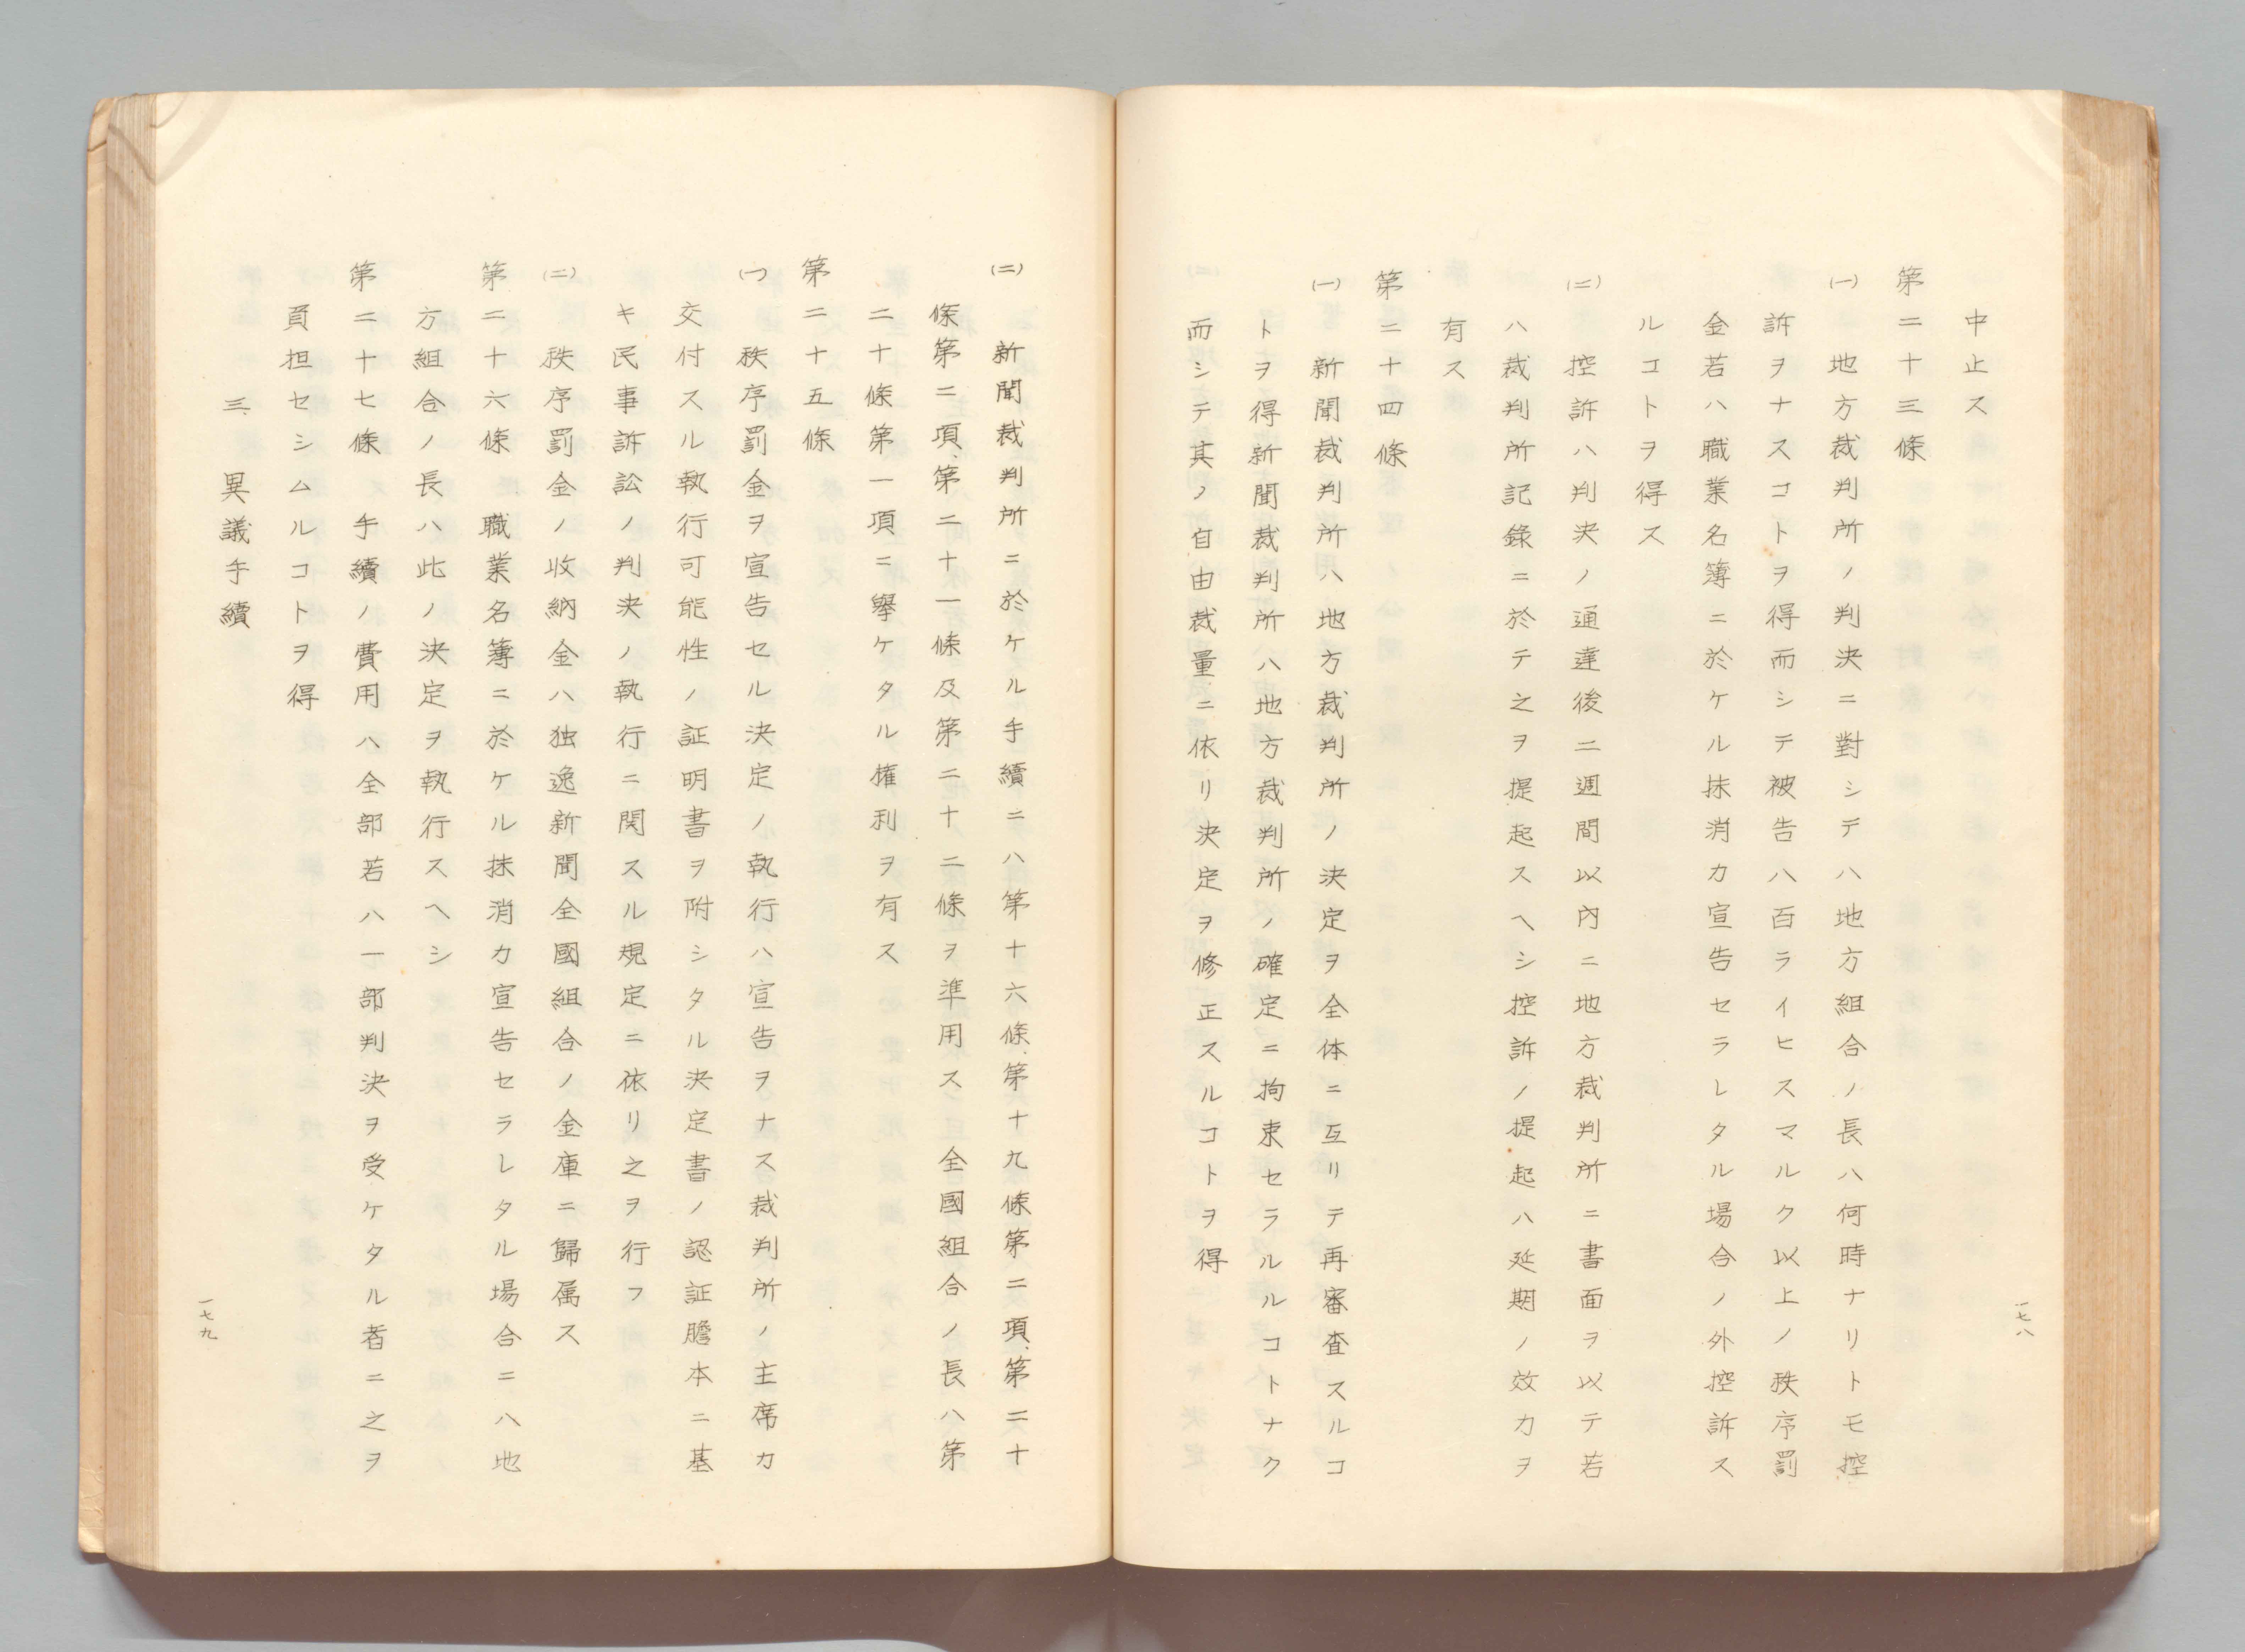 中止ス
第二十三條
(一) 地方裁判所ノ判決ニ對シテハ地方組合ノ長ハ何時ナリトモ控
訴ヲナスコトヲ得而シテ被告ハ百ライヒスマルク以上ノ秩序罰
金若ハ職業名簿ニ於ケル抹消カ宣告セラレタル場合ノ外控訴ス
ルコトヲ得ス
(二) 控訴ハ判決ノ通達後二週間以内ニ地方裁判所ニ書面ヲ以テ若
ハ裁判所記錄ニ於テ之ヲ提起スヘシ控訴ノ提起ハ延期ノ效力ヲ
有ス
第二十四條
(一) 新聞裁判所ハ地方裁判所ノ決定ヲ全体ニ亙リテ再審査スルコ
トヲ得新聞裁判所ハ地方裁判所ノ確定ニ拘束セラルルコトナク
而シテ其ノ自由裁量ニ依リ決定ヲ修正スルコトヲ得
一七八
(二) 新聞裁判所ニ於ケル手續ニハ第十六條、第十九條第二項、第二十
條第二項、第二十一條及第二十二條ヲ準用ス 全國組合ノ長ハ第
二十條第一項ニ擧ケタル權利ヲ有ス
第二十五條
(一) 秩序罰金ヲ宣告セル決定ノ執行ハ宣告ヲナス裁判所ノ主席カ
交付スル執行可能性ノ証明書ヲ附シタル決定書ノ認証謄本ニ基
キ民事訴訟ノ判決ノ執行ニ関スル規定ニ依リ之ヲ行フ
(二) 秩序罰金ノ收納金ハ独逸新聞全國組合ノ金庫ニ歸属ス
第二十六條 職業名簿ニ於ケル抹消カ宣告セラレタル場合ニハ地
方組合ノ長ハ此ノ決定ヲ執行スヘシ
第二十七條 手續ノ費用ハ全部若ハ一部判決ヲ受ケタル者ニ之ヲ
負担セシムルコトヲ得
三、異議手續
一七九